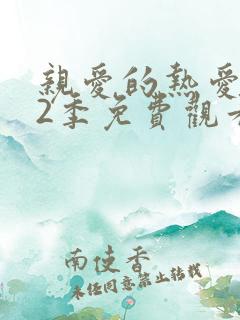 親愛的熱愛
2季免費觀看
南使香
未任同意禁止转载